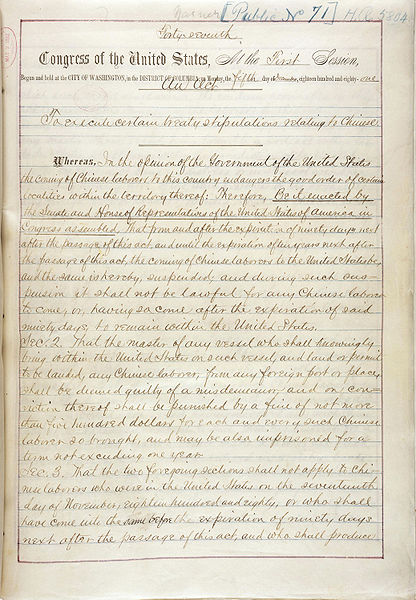 Warner [Public No 71] H.R. 5804
Forty-seventh
Congress of the United States, At the First Session,
Begun and held at the CITY OF WASHINGTON, in the DISTRICT OF COLUMBIA, on Monday, the fifth day of December, eighteen hundred and eighty-one
An Act
To execute certain treaty stipulations relating to Chinese.
Whereas, In the opinion of the Government of the United States
the coming of Chinese laborers to this country endangers the good order of certain
localities within the territory thereof: Therefore, Be it enacted by
the Senate and House of Representatives of the United States of America in
Congress assembled, That from and after the expiration of ninety days next
after the passage of this act, and until the expiration of ten years next after
the passage of this act, the coming of Chinese laborers to the United States be,
and the same is hereby, suspended; and during such sus-
pension it shall not be lawful for any Chinese laborer
to come, or, having so come after the expiration of said
ninety days, to remain within the United States.
Sec. 2. That the master of any vessel who shall knowingly
bring within the United States on such vessel, and land or permit
to be landed, any Chinese laborer, from any foreign port or place,
shall be deemed guilty of a misdemeanor, and on con-
viction thereof shall be punished by a fine of not more
than five hundred dollars for each and every such Chinese
laborer so brought, and may be also imprisoned for a
term not exceeding one year.
Sec. 3. That the two foregoing sections shall not apply to Chi-
nese laborers who were in the United States on the seventeenth
day of November, eighteen hundred and eighty, or who shall
have come into the same before the expiration of ninety days
next after the passage of this act, and who shall produce